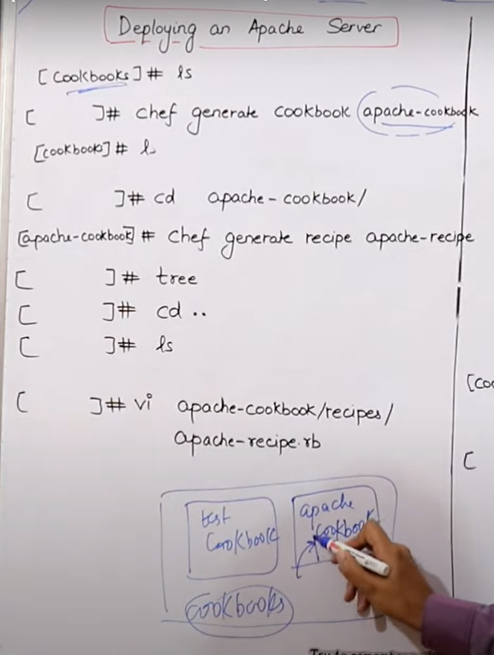 Deploying an Apache Server
[cookbooks]# ls
[ ]# chef generate cookbook apache-cookbook
[cookbook]# l
[ ]# cd apache-cookbook/
[apache-cookbook]# chef generate recipe apache-recipe
[ ]# tree
[ ]# cd ..
[ ]# ls
[coo
[ ]# vi apache-cookbook/recipes/
apache-recipe.rb
[
test
Cookbook
apache
cookbook
Cookbooks